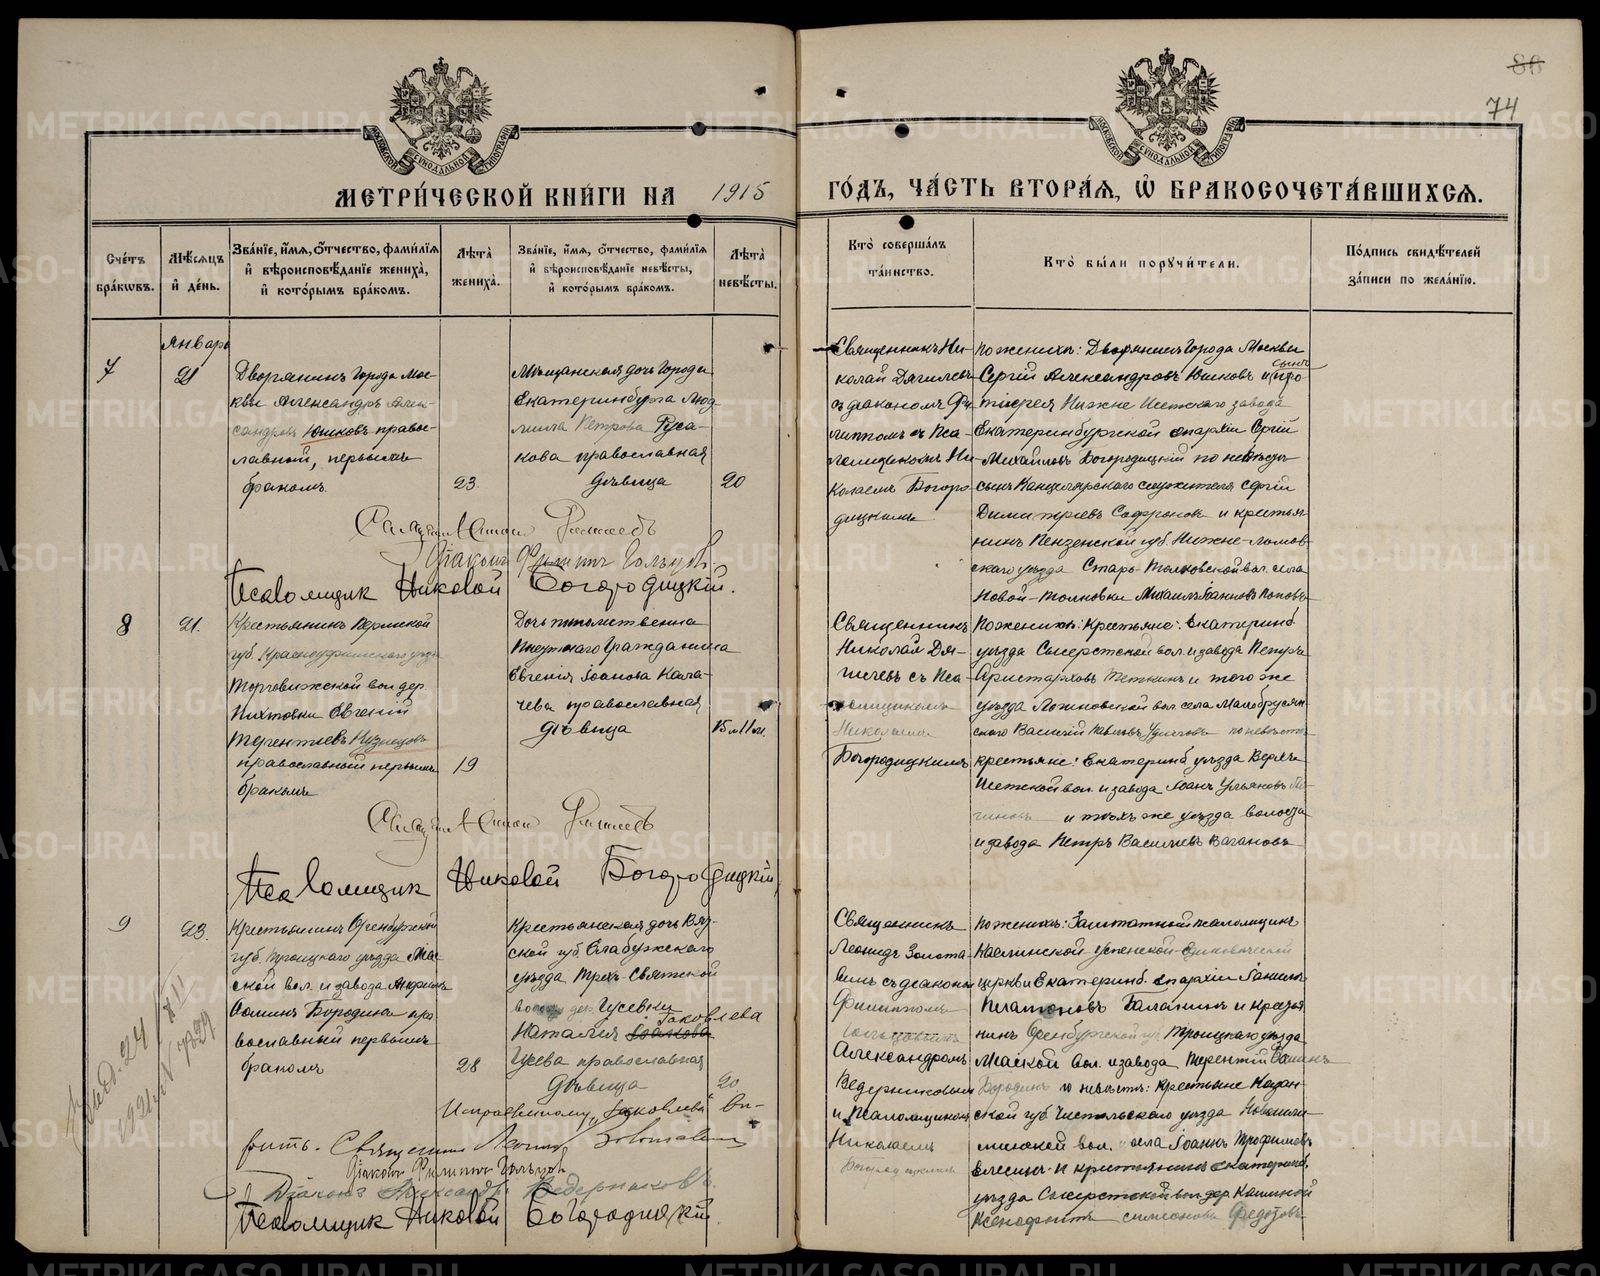 80
74
МЕТРИ́ЧЕСКОЙ КНИ́ГИ НА 1915 ГО́ДЪ, ЧА́СТЬ ВТОРА́Я, Ѽ БРАКОСОЧЕТА́ВШИХСЯ.
Сче́тъ бра́кωвъ.
Мѣ́сяцъ и҆ де́нь.
Зва́нїе, и҆́мя, ѻ҆́тчество, фами́лїя и҆ вѣроисповѣ́данїе жениха̀, и҆ кото́рымъ бра́комъ.
Лѣта̀ жениха̀.
Зва́нїе, и҆́мя, ѻ҆́тчество, фами́лїя и҆ вѣроисповѣ́данїе невѣ́сты, и҆ кото́рымъ бра́комъ.
Лѣта̀ невѣ́сты.
Кто̀ соверша́лъ та́инство.
Кто̀ бы́ли порꙋчи́тели.
По́дпись свидѣ́телей за́писи по жела́нїю.
Январь
7
21
Дворянинъ города Мос-
квы Александръ Алек-
сандровъ Юшковъ право-
славный, первымъ
бракомъ.
23.
Мѣщанская дочь города
Екатеринбурга Люд-
мила Петрова Руса-
кова православная
дѣвица
20
Священникъ Ни-
колай Дягилевъ
съ діакономъ Фи-
липпомъ съ Пса-
ломщикомъ Ни-
колаемъ Богоро-
дицкимъ
По женихѣ: Дворянинъ города Москвы
Сергій Александровъ Юшковъ и сынъ про-
тоіерея Нижне Исетскаго завода
Екатеринбургской епархіи Сергій
Михайловъ Богородицкій по невѣстѣ
сынъ Канцелярскаго служителя Сергій
Димитріевъ Сафроновъ и крестья-
нинъ Пензенской губ. Нижне-Ломов-
скаго уѣзда Старо-Толковской вол. села
Новой-Толковки Михаилъ Іоанновъ Поповъ
Діаконъ Филиппъ Гольцовъ
Псаломщик Николай Богородицкій.
8
21.
Крестьянинъ Пермской
губ. Красноуфимскаго уѣзда
Торговижской вол. дер.
Пихтовки Евгеній
Терентьевъ Кузнецовъ
православный первымъ
бракомъ
19
Дочь
Гражданина
Евгенія Іоанова Кала-
чева православная
дѣвица
15 л. 11 м.
Священникъ
Николай Дя-
гилевъ съ Пса-
ломщикомъ
Николаемъ
Богородицкимъ
По женихѣ: крестьяне: Екатеринб.
уѣзда Сысертской вол. и завода Петръ
Аристарховъ Теткинъ и того же
уѣзда Логиновской вол. села Малобрусян-
скаго Василій Павловъ по невѣстѣ
крестьяне: Екатеринб. уѣзда Верхъ-
Исетской вол. и завода Іоанъ Ульяновъ
и тѣхъ же уѣзда волости
и завода Петръ Васильевъ Вагановъ
Псаломщик Николай Богородицкій
9
23.
Крестьянинъ Оренбургской
губ. Троицкаго уѣзда Міас-
ской вол. и завода Андрей
Фоминъ Бородинъ пра-
вославный первымъ
бракомъ
28
Крестьянская дочь Вят-
ской губ. Елабужскаго
уѣзда Трех-Святской
волости дер. Гусевки
Наталія Яковлева
Гусева православная
дѣвица
20
Священникъ
Леонидъ Золота-
винъ съ діакономъ
Филиппомъ
Гольцовымъ
Александромъ
Ведерниковымъ
и Псаломщикомъ
Николаемъ
Богородицкимъ
По женихѣ: Заштатный псаломщикъ
Каслинской Успенской Единовѣрческой
церкви Екатеринб. Епархіи Іоаннъ
Платоновъ Баланинъ и крестья-
нинъ Оренбургской губ. Троицкаго уѣзда
Міаской вол. и завода Терентій Фоминъ
Бородинъ по невѣстѣ: крестьяне Казан-
ской губ. Чистопольскаго уѣзда
вол. села Іоаннъ Трофимовъ
и крестьянинъ Екатеринб.
уѣзда Сысертской вол. дер. Кашиной
Ксенофонтъ Симеоновъ Федотовъ
Исправленному „Яковлева" вѣ-
рить. Священникъ Леонидъ Золотавинъ
Діаконъ Филиппъ Гольцовъ
Діаконъ Александръ Ведерниковъ.
Псаломщик Николай Богородицкій.